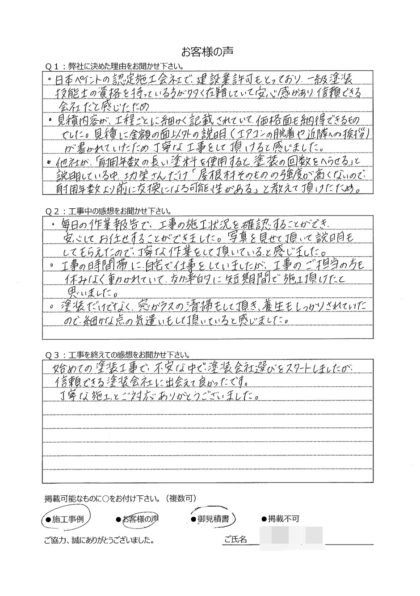 お客様の声
Q1：弊社に決めた理由をお聞かせ下さい。
・日本ペイントの認定施工会社で、建設業許可もとっており、一級塗装
技能士の資格を持っている方が多く在籍していて安心感があり信頼できる
会社だと感じたため
・見積内容が、工程ごとに細かく記載されていて価格面も納得できるもの
でした。見積に金額の面以外の説明（エアコンの脱着や近隣への挨拶）
が書かれていたため丁寧な工事をして頂けると感じました。
・他社が、「耐用年数の長い塗料を使用すると、塗装の回数をへらせる」と
説明している中、功栄さんだけ「屋根材そのものの強度が高くないので、
耐用年数より前に交換になる可能性がある」と教えて頂けたため。
Q2：工事中の感想をお聞かせ下さい。
・毎日の作業報告で、工事の施工状況を確認することができ、
安心してお任せすることができました。写真を見せて頂いて説明も
してもらえたので、丁寧な作業をして頂いていると感じました。
・工事の時間帯に自宅で仕事をしていましたが、工事のご担当の方も
休みなく動かれていて、効率的に短期間で施工頂けたと
思いました。
・塗装だけでなく、窓ガラスの清掃もして頂き、養生もしっかりされていた
ので細かな点の気遣いもして頂いていると感じました。
Q3：工事を終えての感想をお聞かせ下さい。
始めての塗装工事で、不安な中で塗装会社選びをスタートしましたが、
信頼できる塗装会社に出会えて良かったです。
丁寧な施工とご対応ありがとうございました。
掲載可能なものに○をお付け下さい。（複数可）
●施工事例 ●お客様の声 ●御見積書 ●掲載不可
ご協力、誠にありがとうございました。 ご氏名